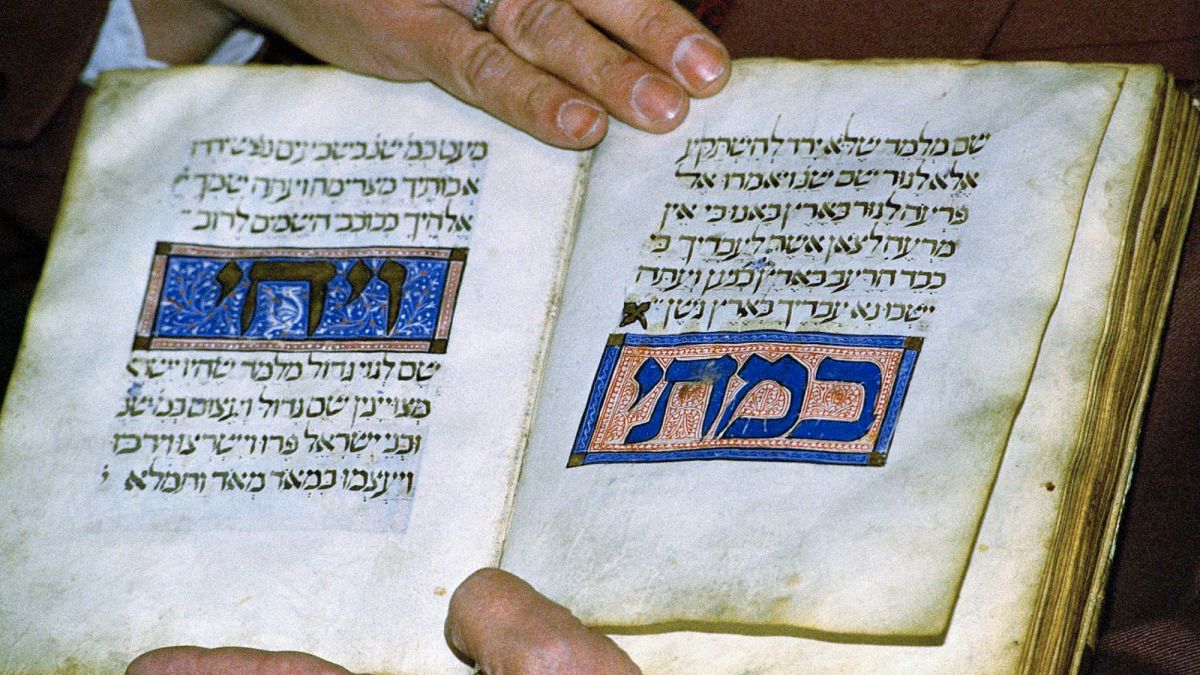 שם מלמד שלא ירד להשתקע
אלא לגור שם שנ ויאמרו אל
פרעה לגור בארץ באנו כי אין
מרעה לצאן אשר לעבדיך כי
כבד הרעב בארץ כנען ועתה
ישבו נא עבדיך בארץ גשן
במתי
מעט כמ שנ בשבעים נפש ירדו
אבותיך מצרימה ועתה שמך יי
אלהיך ככוכבי השמים לרוב
ויהי
שם לגוי גדול מלמד שהיו ישרא
מצויינין שם גדול ועצום כמ שנ
ובני ישראל פרו וישרצו וירבו
ויעצמו במאד מאד ותמלא